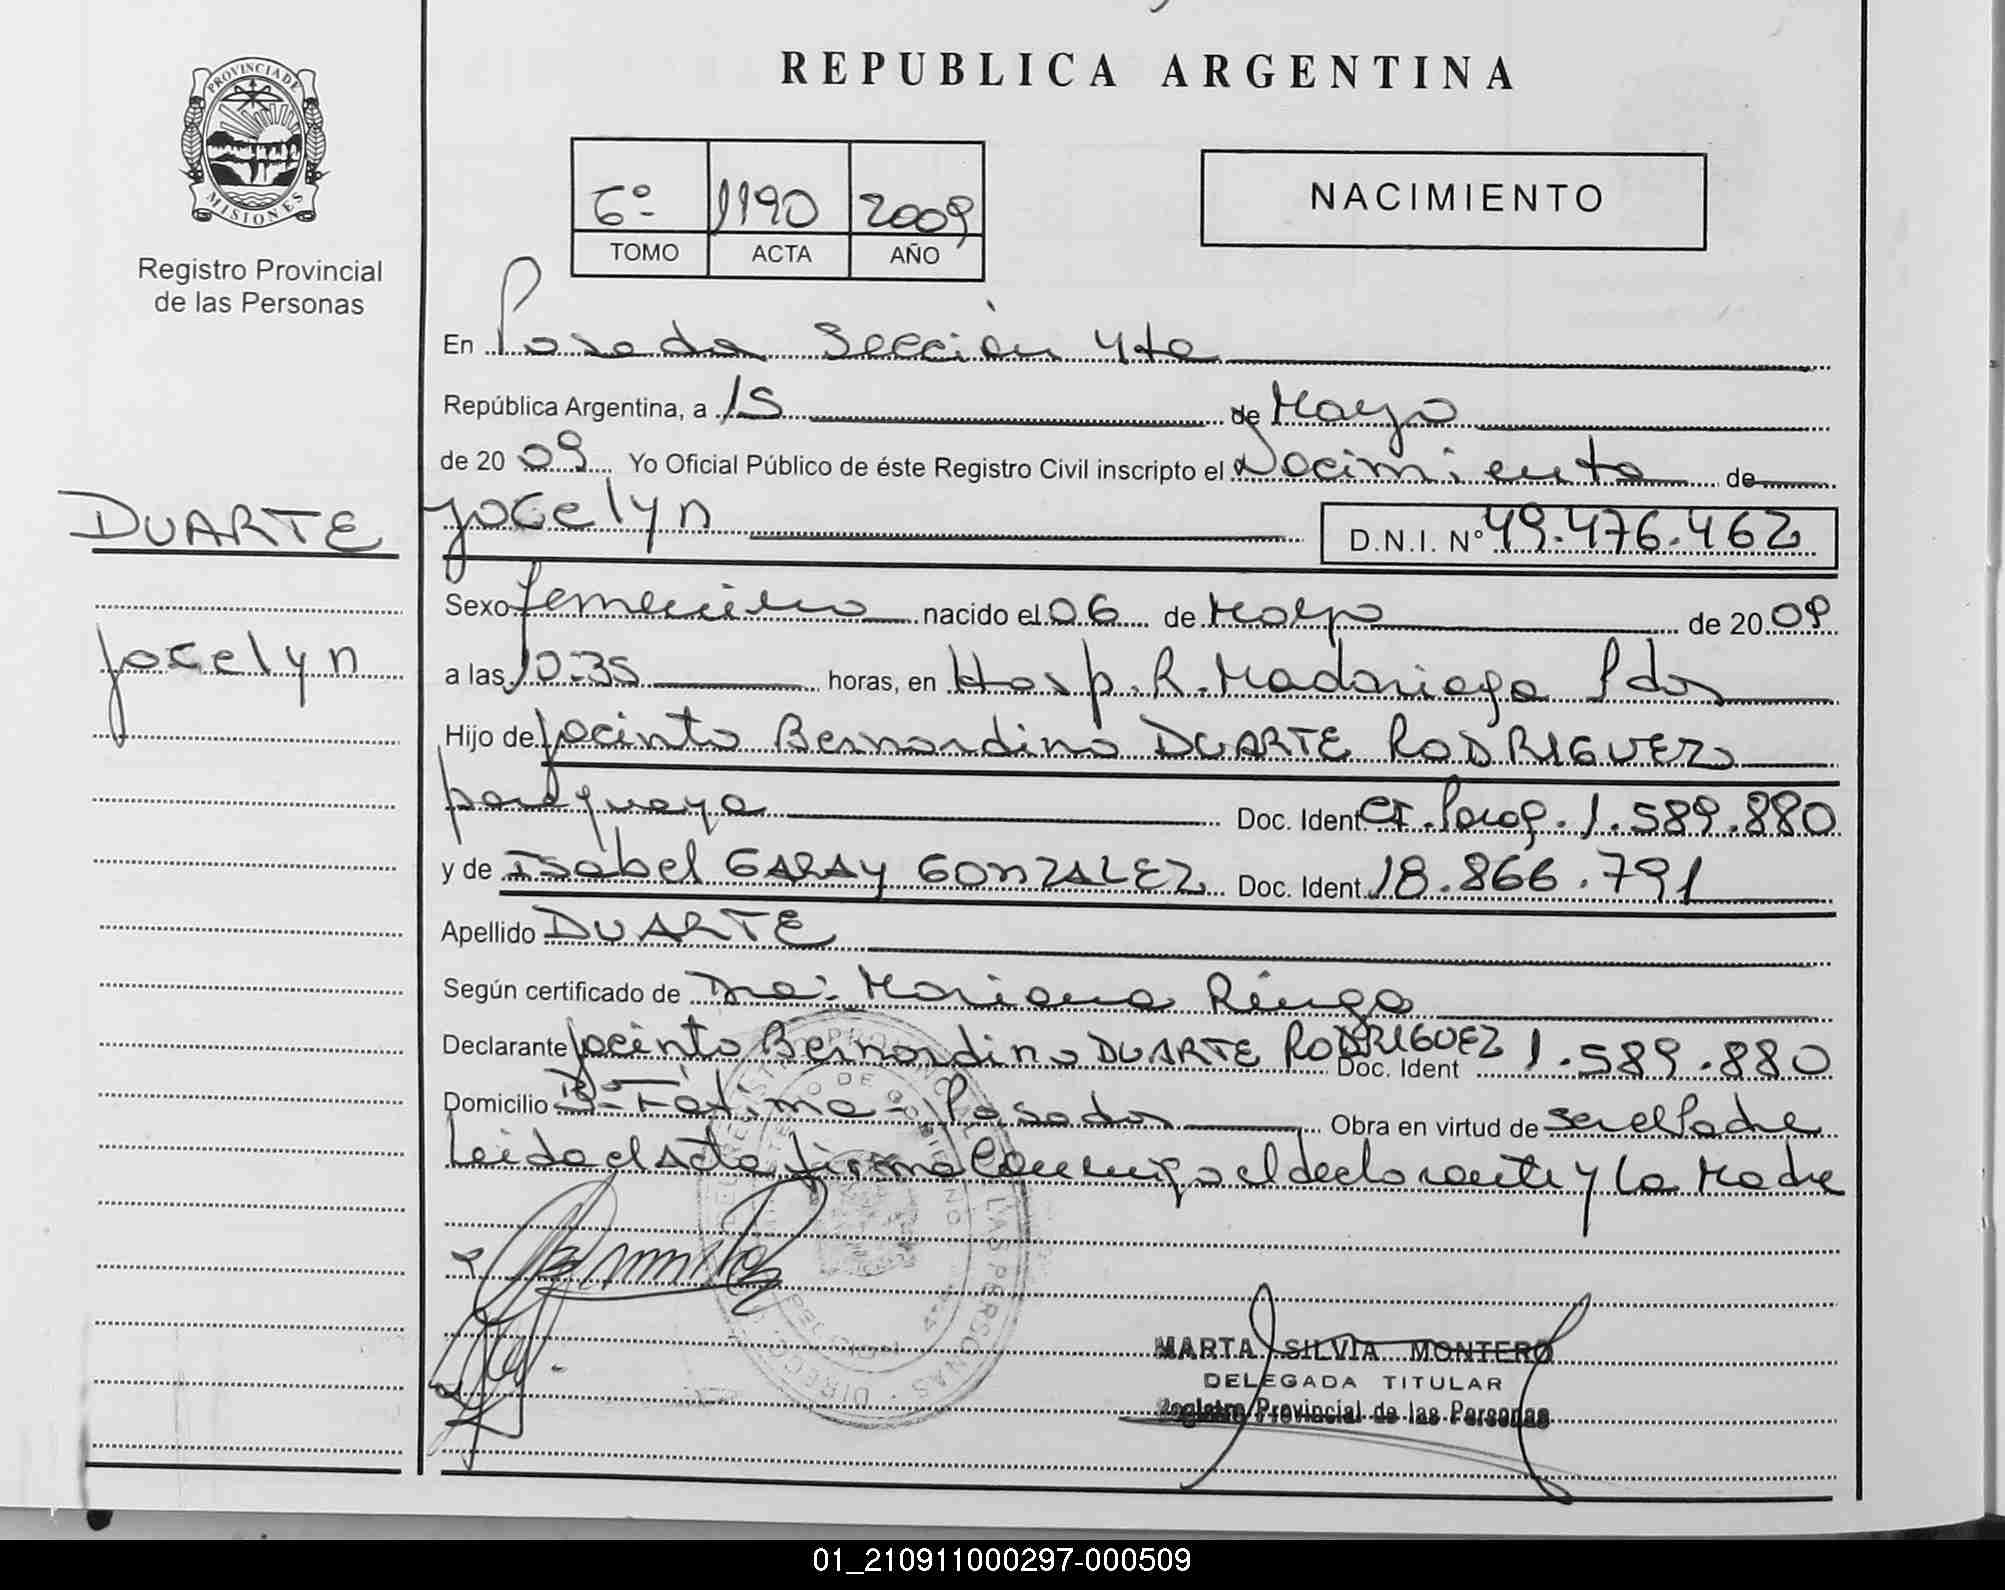 PROVINCIA DE
MISIONES
Registro Provincial
de las Personas
REPUBLICA ARGENTINA
6º 1190 2009
TOMO ACTA AÑO
NACIMIENTO
En Posadas Sección 4ta
República Argentina, a 15 de Mayo
de 2009 Yo Oficial Público de éste Registro Civil inscripto el Nacimiento de
DUARTE
Jocelyn
Jocelyn D.N.I. Nº 49.476.462
Sexo femenino nacido el 06 de Mayo de 2009
a las 10:35 horas, en Hosp. R. Madariaga Pdas
Hijo de Jacinto Bernardino DUARTE RODRIGUEZ
paraguayo Doc. Ident. CI. Parag. 1.589.880
y de Isabel GARAY GONZALEZ Doc. Ident. 18.866.791
Apellido DUARTE
Según certificado de Dra. Mariana Ringa
Declarante Jacinto Bernardino DUARTE RODRIGUEZ Doc. Ident 1.589.880
Domicilio Bº Fátima - Posadas Obra en virtud de ser el Padre
Leida el Acta firma conmigo el declarante y la Madre
MARTA SILVIA MONTERO
DELEGADA TITULAR
Registro Provincial de las Personas
01_210911000297-000509